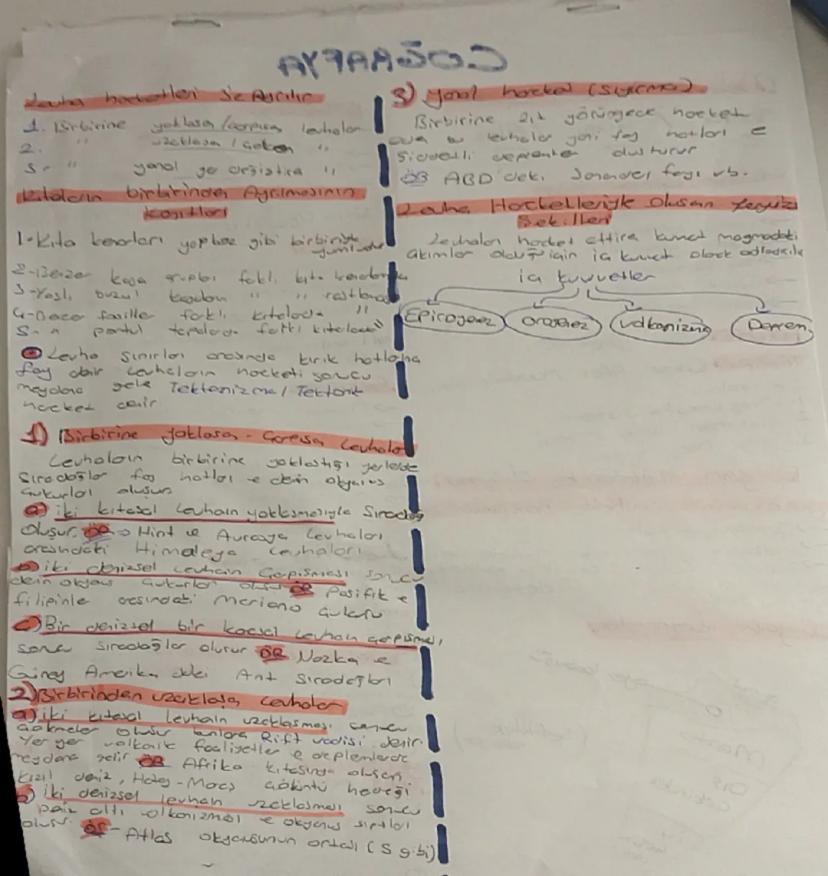 Levha hareketleri 3'e Ayrılır
1. Birbirine yaklaşan/çarpışan levhalar
2. " uzaklaşan/ "
3. " yanal yer değiştiren "
Kıtaların birbirinden Ayrılmasının
kanıtları
1-Kıta kenarları yapboz gibi birbiriyle
2-Benzer kayaç grupları farklı kıta kenarlarında
3-Yaşlı buzul " " rastlanması
4-Benzer fosiller farklı kıtalarda "
5- " tepelerde farklı kıtalarda
Levha sınırları arasında kırık hatlarına
fay denir levhaların hareketi sonucu
meydana gelen Tektonizma/Tektonik
hareket denir
1) Birbirine yaklaşan-Çarpışan Levhalar
Levhaların birbirine yaklaştığı yerlerde
Sıradağlar fay hatları ve derin okyanus
çukurları oluşur
a) iki kıtasal levhanın yaklaşmasıyla Sıradağ
Oluşur. ÖR → Hint ve Avrasya levhaları
arasındaki Himalaya levhaları
b) iki denizsel levhanın Çarpışması sonucu
derin okyanus çukurları oluşur ÖR Pasifik ve
filipinle arasındaki Mariana çukuru
c) Bir denizsel bir karasal levhanın çarpışması,
sonucu sıradağlar oluşur ÖR Nazka ve
Güney Amerika daki Ant sıradağları
2) Birbirinden uzaklaşan levhalar
a) iki kıtasal levhanın uzaklaşması sonucu
çökmeler oluşur bunlara Rift vadisi denir.
Yer yer volkanik faaliyetler ve depremlerde
meydana gelir ÖR Afrika kıtasında oluşan
Kızıl deniz, Hatay-Maraş çöküntü hendeği
b) iki denizsel levhanın uzaklaşması sonucu
altı volkanizması ve okyanus sırtları
oluşur. ÖR- Atlas okyanusunun ortası (S gibi)
3) Yanal hareket (Sıyırma)
Birbirine zıt yönde hareket
levhalar yeni fay hatları ve
Şiddetli depremler oluşturur
ÖR ABD deki San Andreas fayı vb.
Levha Hareketleriyle Oluşan Yeryüzü
Şekilleri
Levhaları hareket ettiren kuvvet magmadaki
akımlar olduğu için iç kuvvet olarak adlandırılır
iç kuvvetler
Epirojenez Orojenez volkanizma Deprem